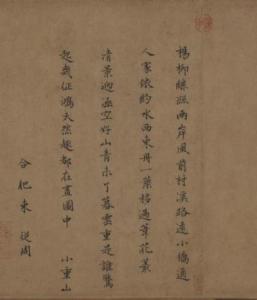 楊柳絲兩岸風前村溪路遠小橋通
人家依約水西東舟一葉搖過葦花叢
清景迥涵空好山青未了暮雲重是誰驚
起幾征鴻天然趣都在畫圖中 小重山
合肥束從周